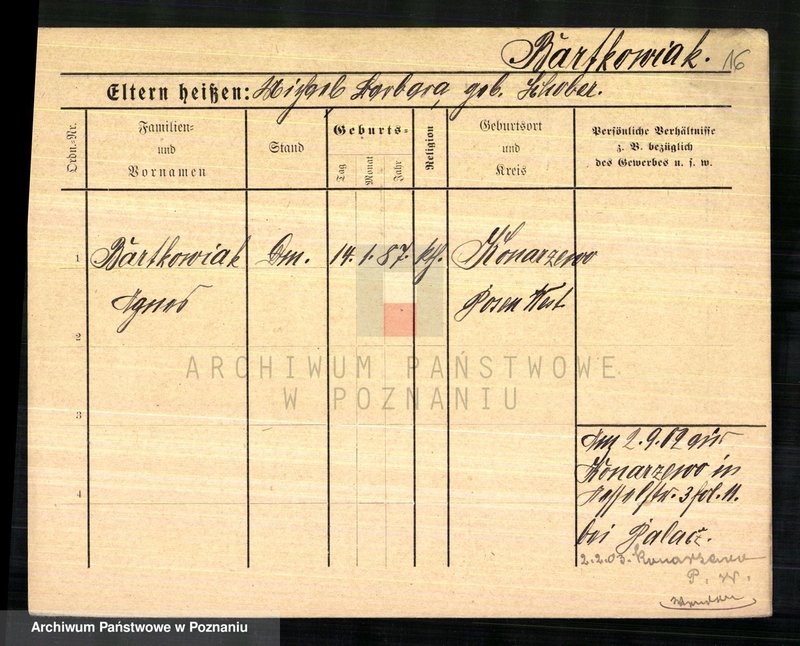 Bartkowiak. 16
Eltern heißen: Michael Barbara, geb. Schober.
Ordn.-Nr.
Familien-
und
Vornamen
Stand
Geburts-
Tag
Monat
Jahr
Religion
Geburtsort
und
Kreis
Persönliche Verhältnisse
z. B. bezüglich
des Gewerbes u. s. w.
1 Bartkowiak Dm. 14. 1. 87. kth. Konarzewo
Agnes Posen West
2
ARCHIWUM PAŃSTWOWE
W POZNANIU
3
4
2.9.02 aus
Konarzewo in
3
bei Palacz.
2.2.03. Konarzewo
P. W.
Archiwum Państwowe w Poznaniu